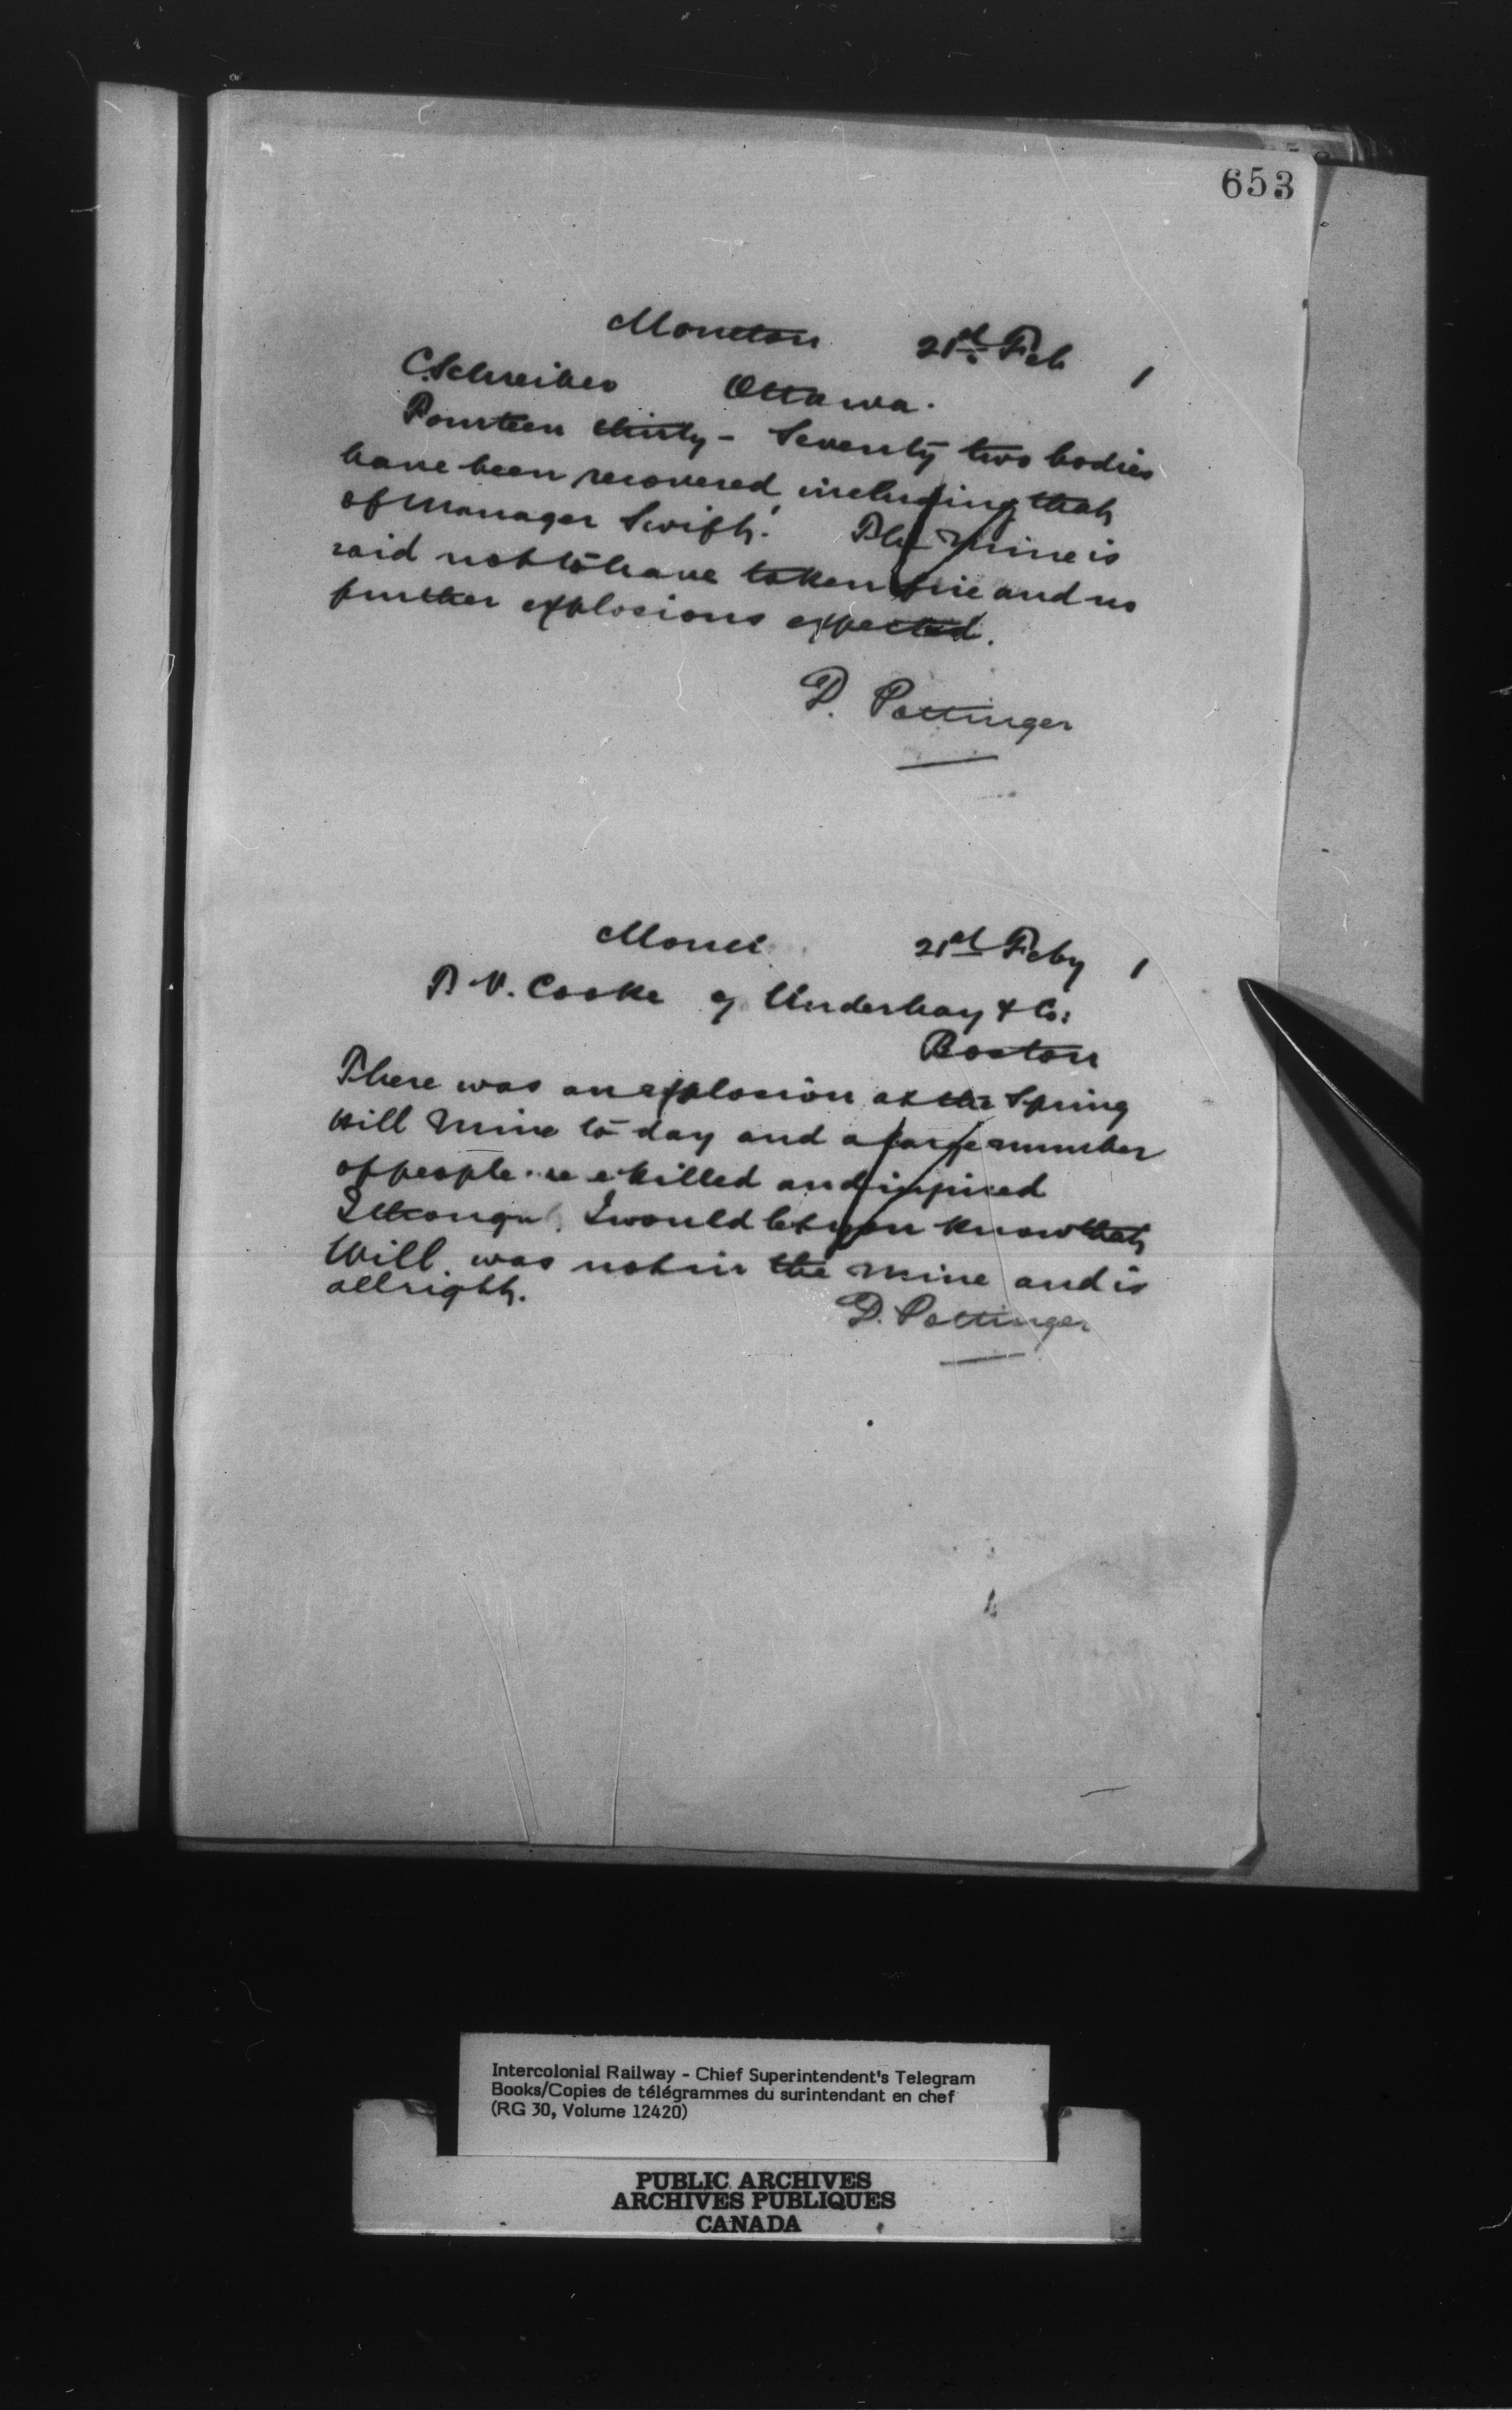 653
Moncton 21st Feb 1
C. Schreiber Ottawa.
Fourteen thirty - Seventy two bodies
have been recovered including that
of Manager Swift. The Mine is
said not to have taken fire and no
further explosions expected.
D. Pottinger
Monct 21st Feby 1
T. V. Cooke c/o Underhay & Co:
Boston
There was an explosion at the Spring
Hill Mine to day and a large number
of people were killed and injured
I thought I would let you know that
Will was not in the Mine and is
all right.
D. Pottinger
Intercolonial Railway - Chief Superintendent's Telegram
Books/Copies de télégrammes du surintendant en chef
(RG 30, Volume 12420)
PUBLIC ARCHIVES
ARCHIVES PUBLIQUES
CANADA